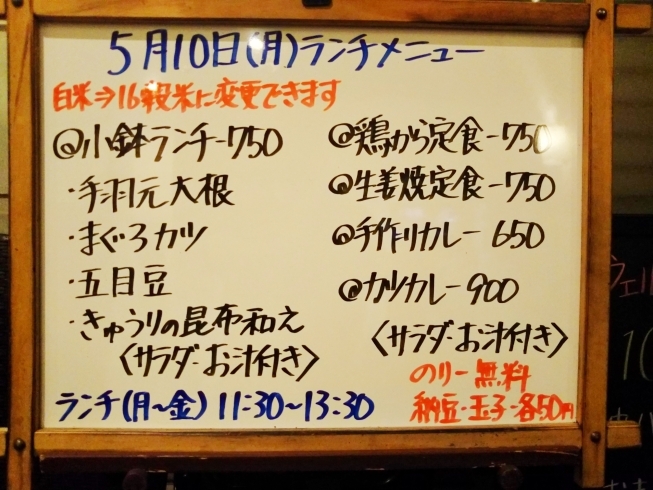 5月10日(月)ランチメニュー
白米⇒16穀米に変更できます
@小鉢ランチ-750
・手羽元大根
・まぐろカツ
・五目豆
・きゅうりの昆布和え
〈サラダ・お汁付き〉
@鶏から定食-750
@生姜焼定食-750
@手作りカレー 650
@カツカレー900
〈サラダ・お汁付き〉
のりー無料
納豆・玉子-各50円
ランチ(月〜金) 11:30〜13:30